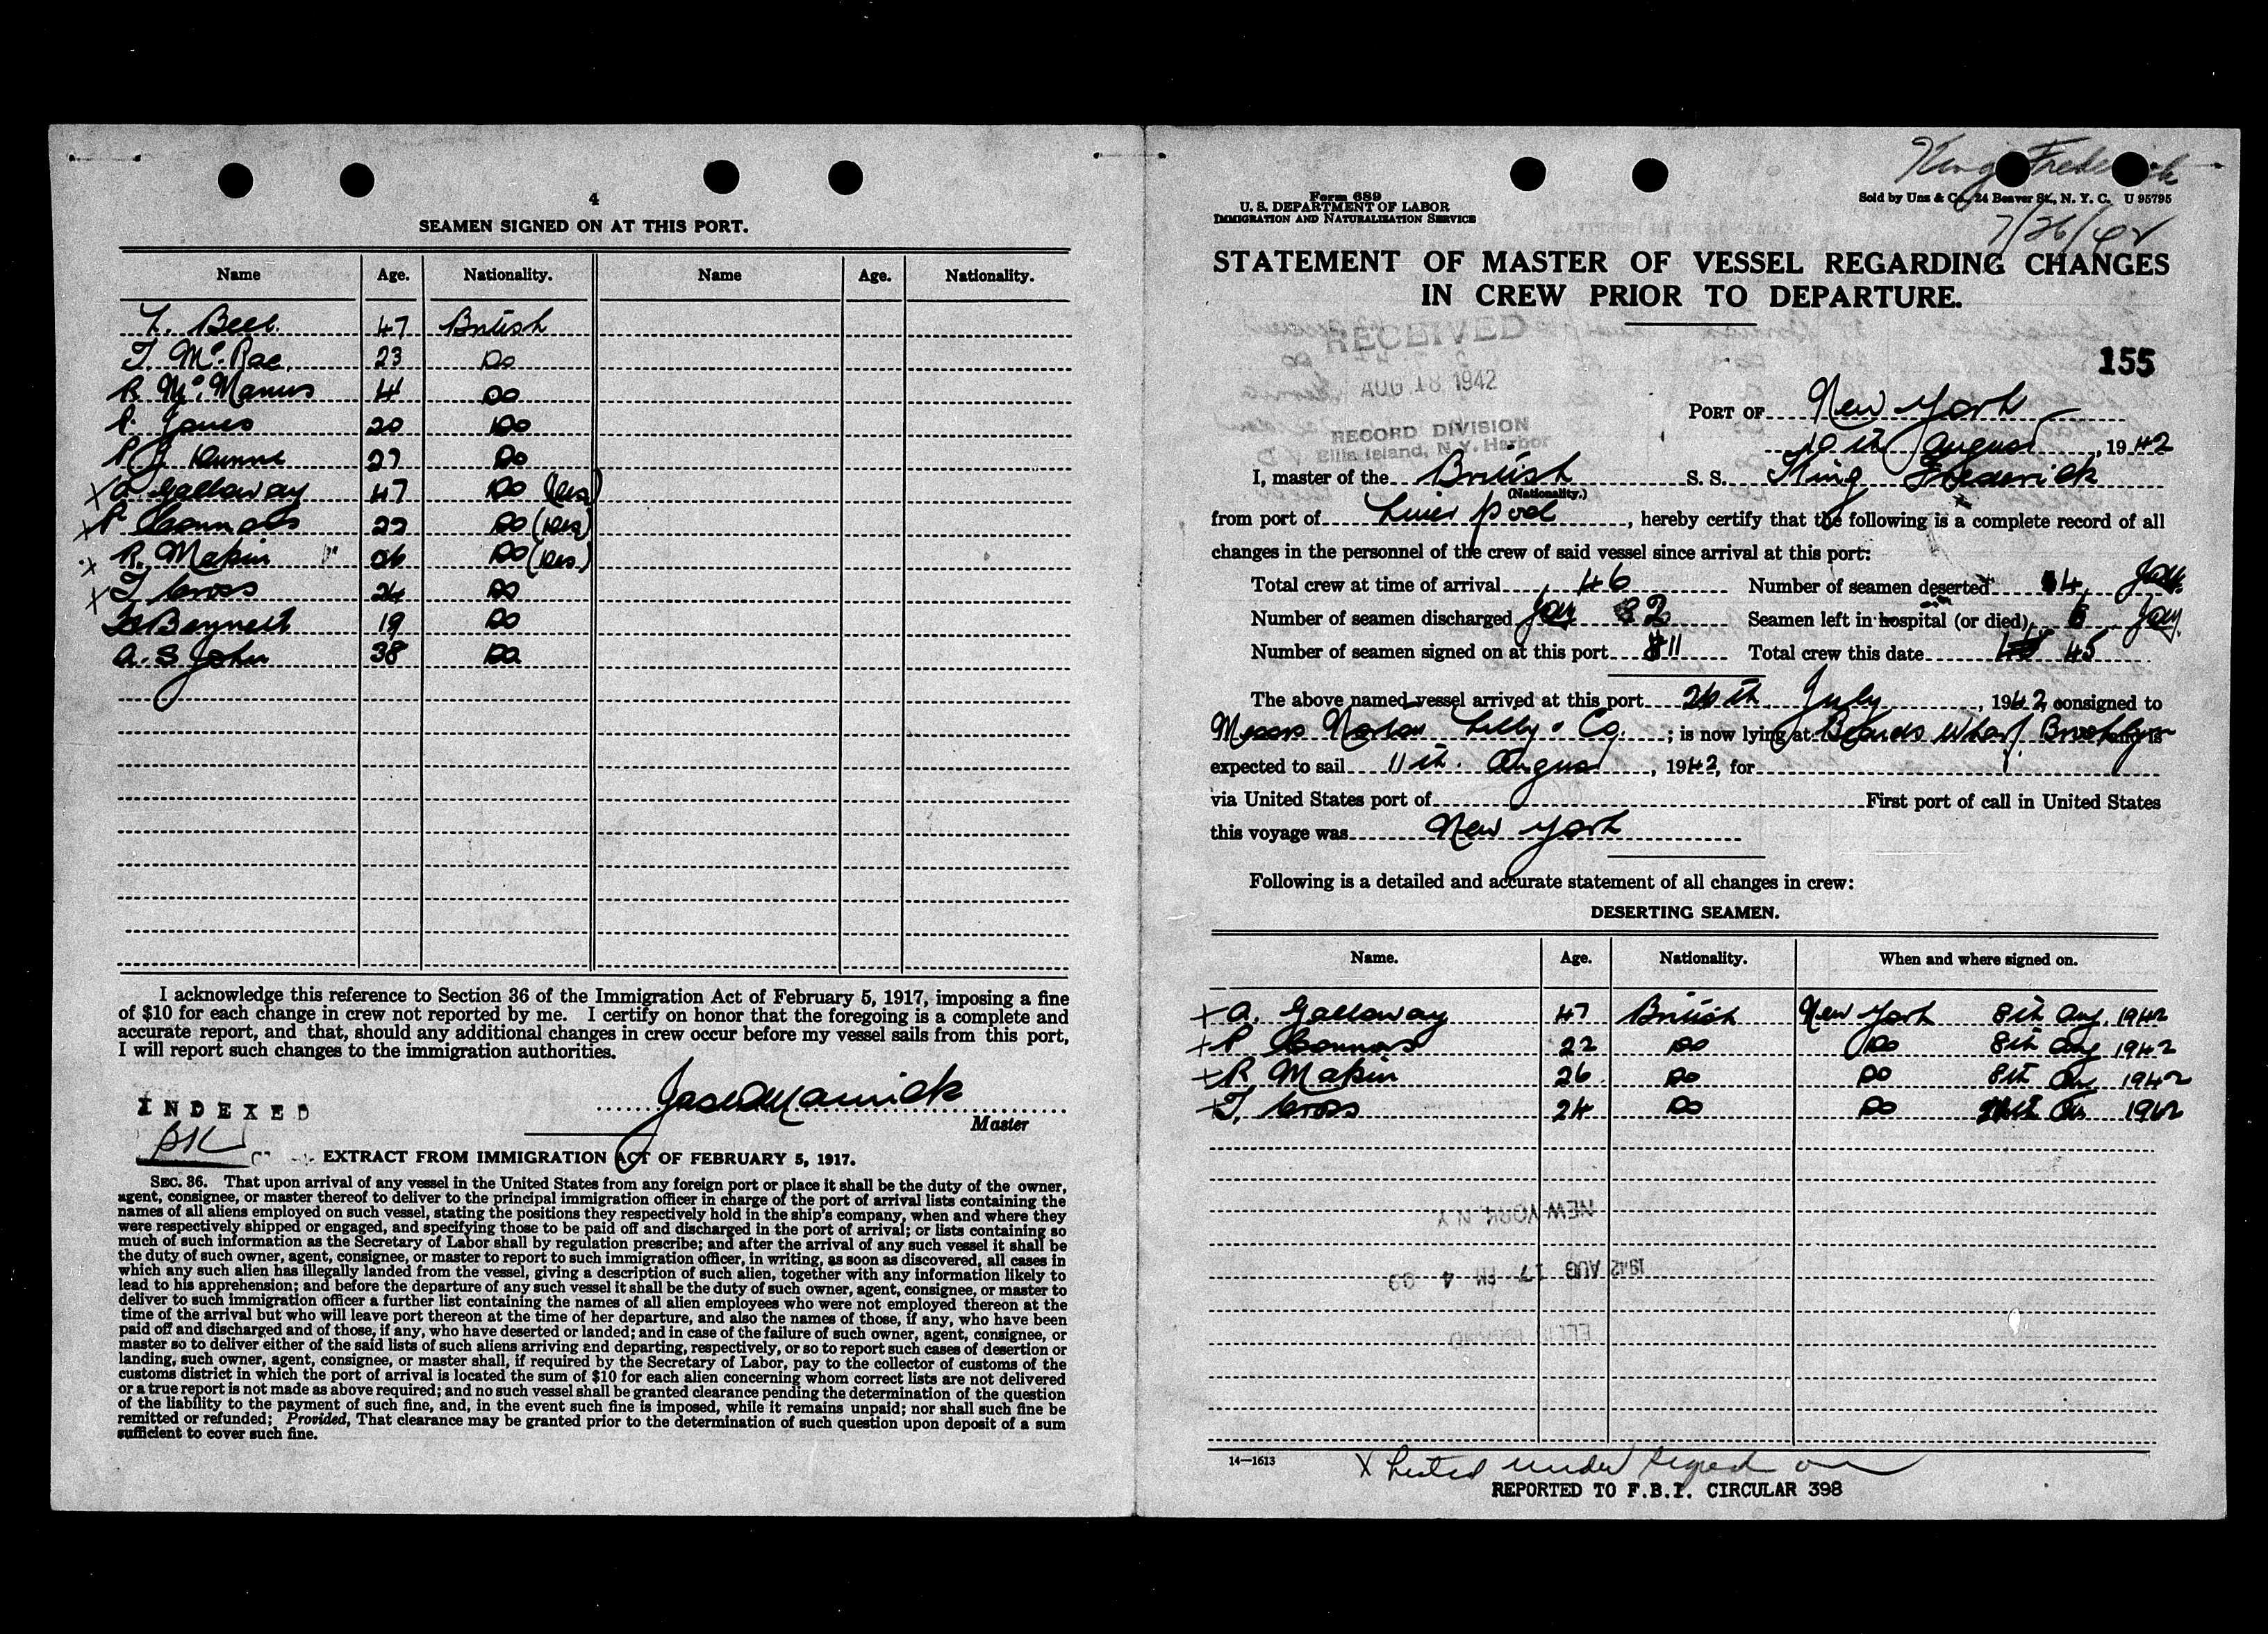 4
SEAMEN SIGNED ON AT THIS PORT.
Name Age. Nationality. Name Age. Nationality.
Bell 47 British
T. Mc. Rae. 23 Do
R. Mc. Manus Do
Jones 20 Do
P J. Dunne 27 Do
X A Galloway 47 Do (Des)
X P Connols 22 Do (Des)
X R. Makin 26 Do (Des)
X T Cross 24 Do
Bennett 19 Do
A. S John 38 Do
I acknowledge this reference to Section 36 of the Immigration Act of February 5, 1917, imposing a fine
of $10 for each change in crew not reported by me. I certify on honor that the foregoing is a complete and
accurate report, and that, should any additional changes in crew occur before my vessel sails from this port,
I will report such changes to the immigration authorities.
INDEXED
Master
EXTRACT FROM IMMIGRATION ACT OF FEBRUARY 5, 1917.
SEC. 36. That upon arrival of any vessel in the United States from any foreign port or place it shall be the duty of the owner,
agent, consignee, or master thereof to deliver to the principal immigration officer in charge of the port of arrival lists containing the
names of all aliens employed on such vessel, stating the positions they respectively hold in the ship's company, when and where they
were respectively shipped or engaged, and specifying those to be paid off and discharged in the port of arrival; or lists containing so
much of such information as the Secretary of Labor shall by regulation prescribe; and after the arrival of any such vessel it shall be
the duty of such owner, agent, consignee, or master to report to such immigration officer, in writing, as soon as discovered, all cases in
which any such alien has illegally landed from the vessel, giving a description of such alien, together with any information likely to
lead to his apprehension; and before the departure of any such vessel it shall be the duty of such owner, agent, consignee, or master to
deliver to such immigration officer a further list containing the names of all alien employees who were not employed thereon at the
time of the arrival but who will leave port thereon at the time of her departure, and also the names of those, if any, who have been
paid off and discharged and of those, if any, who have deserted or landed; and in case of the failure of such owner, agent, consignee, or
master so to deliver either of the said lists of such aliens arriving and departing, respectively, or so to report such cases of desertion or
landing, such owner, agent, consignee, or master shall, if required by the Secretary of Labor, pay to the collector of customs of the
customs district in which the port of arrival is located the sum of $10 for each alien concerning whom correct lists are not delivered
or a true report is not made as above required; and no such vessel shall be granted clearance pending the determination of the question
of the liability to the payment of such fine, and, in the event such fine is imposed, while it remains unpaid; nor shall such fine be
remitted or refunded; Provided, That clearance may be granted prior to the determination of such question upon deposit of a sum
sufficient to cover such fine.
King Frederick
Form 689
U. S. DEPARTMENT OF LABOR
IMMIGRATION AND NATURALIZATION SERVICE
Sold by Unz & Co., 24 Beaver St., N. Y. C. U 95795
7/26/42
STATEMENT OF MASTER OF VESSEL REGARDING CHANGES
IN CREW PRIOR TO DEPARTURE.
RECEIVED
155
AUG 18 1942
PORT OF New York
RECORD DIVISION
Ellis Island, N. Y. Harbor
10th August, 1942
I, master of the British S. S. King Frederick
(Nationality.)
from port of Liverpool, hereby certify that the following is a complete record of all
changes in the personnel of the crew of said vessel since arrival at this port:
Total crew at time of arrival 46 Number of seamen deserted 4
Number of seamen discharged Seamen left in hospital (or died)
Number of seamen signed on at this port 11 Total crew this date 45
The above named vessel arrived at this port 26th July, 1942, consigned to
Messrs Norton Lilly & Co.; is now lying at Beards Wharf. Brooklyn and is
expected to sail 11th. August, 1942, for
via United States port of First port of call in United States
this voyage was New York
Following is a detailed and accurate statement of all changes in crew:
DESERTING SEAMEN.
Name. Age. Nationality. When and where signed on.
X A. Galloway 47 British New York 8th Aug. 1942
X P Connors 22 Do Do 8th Aug 1942
X R Makin 26 Do Do 8th Aug 1942
X T. Cross 24 Do Do 1942
NEW YORK N Y
1942 AUG 17 PM 4 09
ELLIS ISLAND
14—1613
X Listed under signed on
REPORTED TO F.B.I. CIRCULAR 398